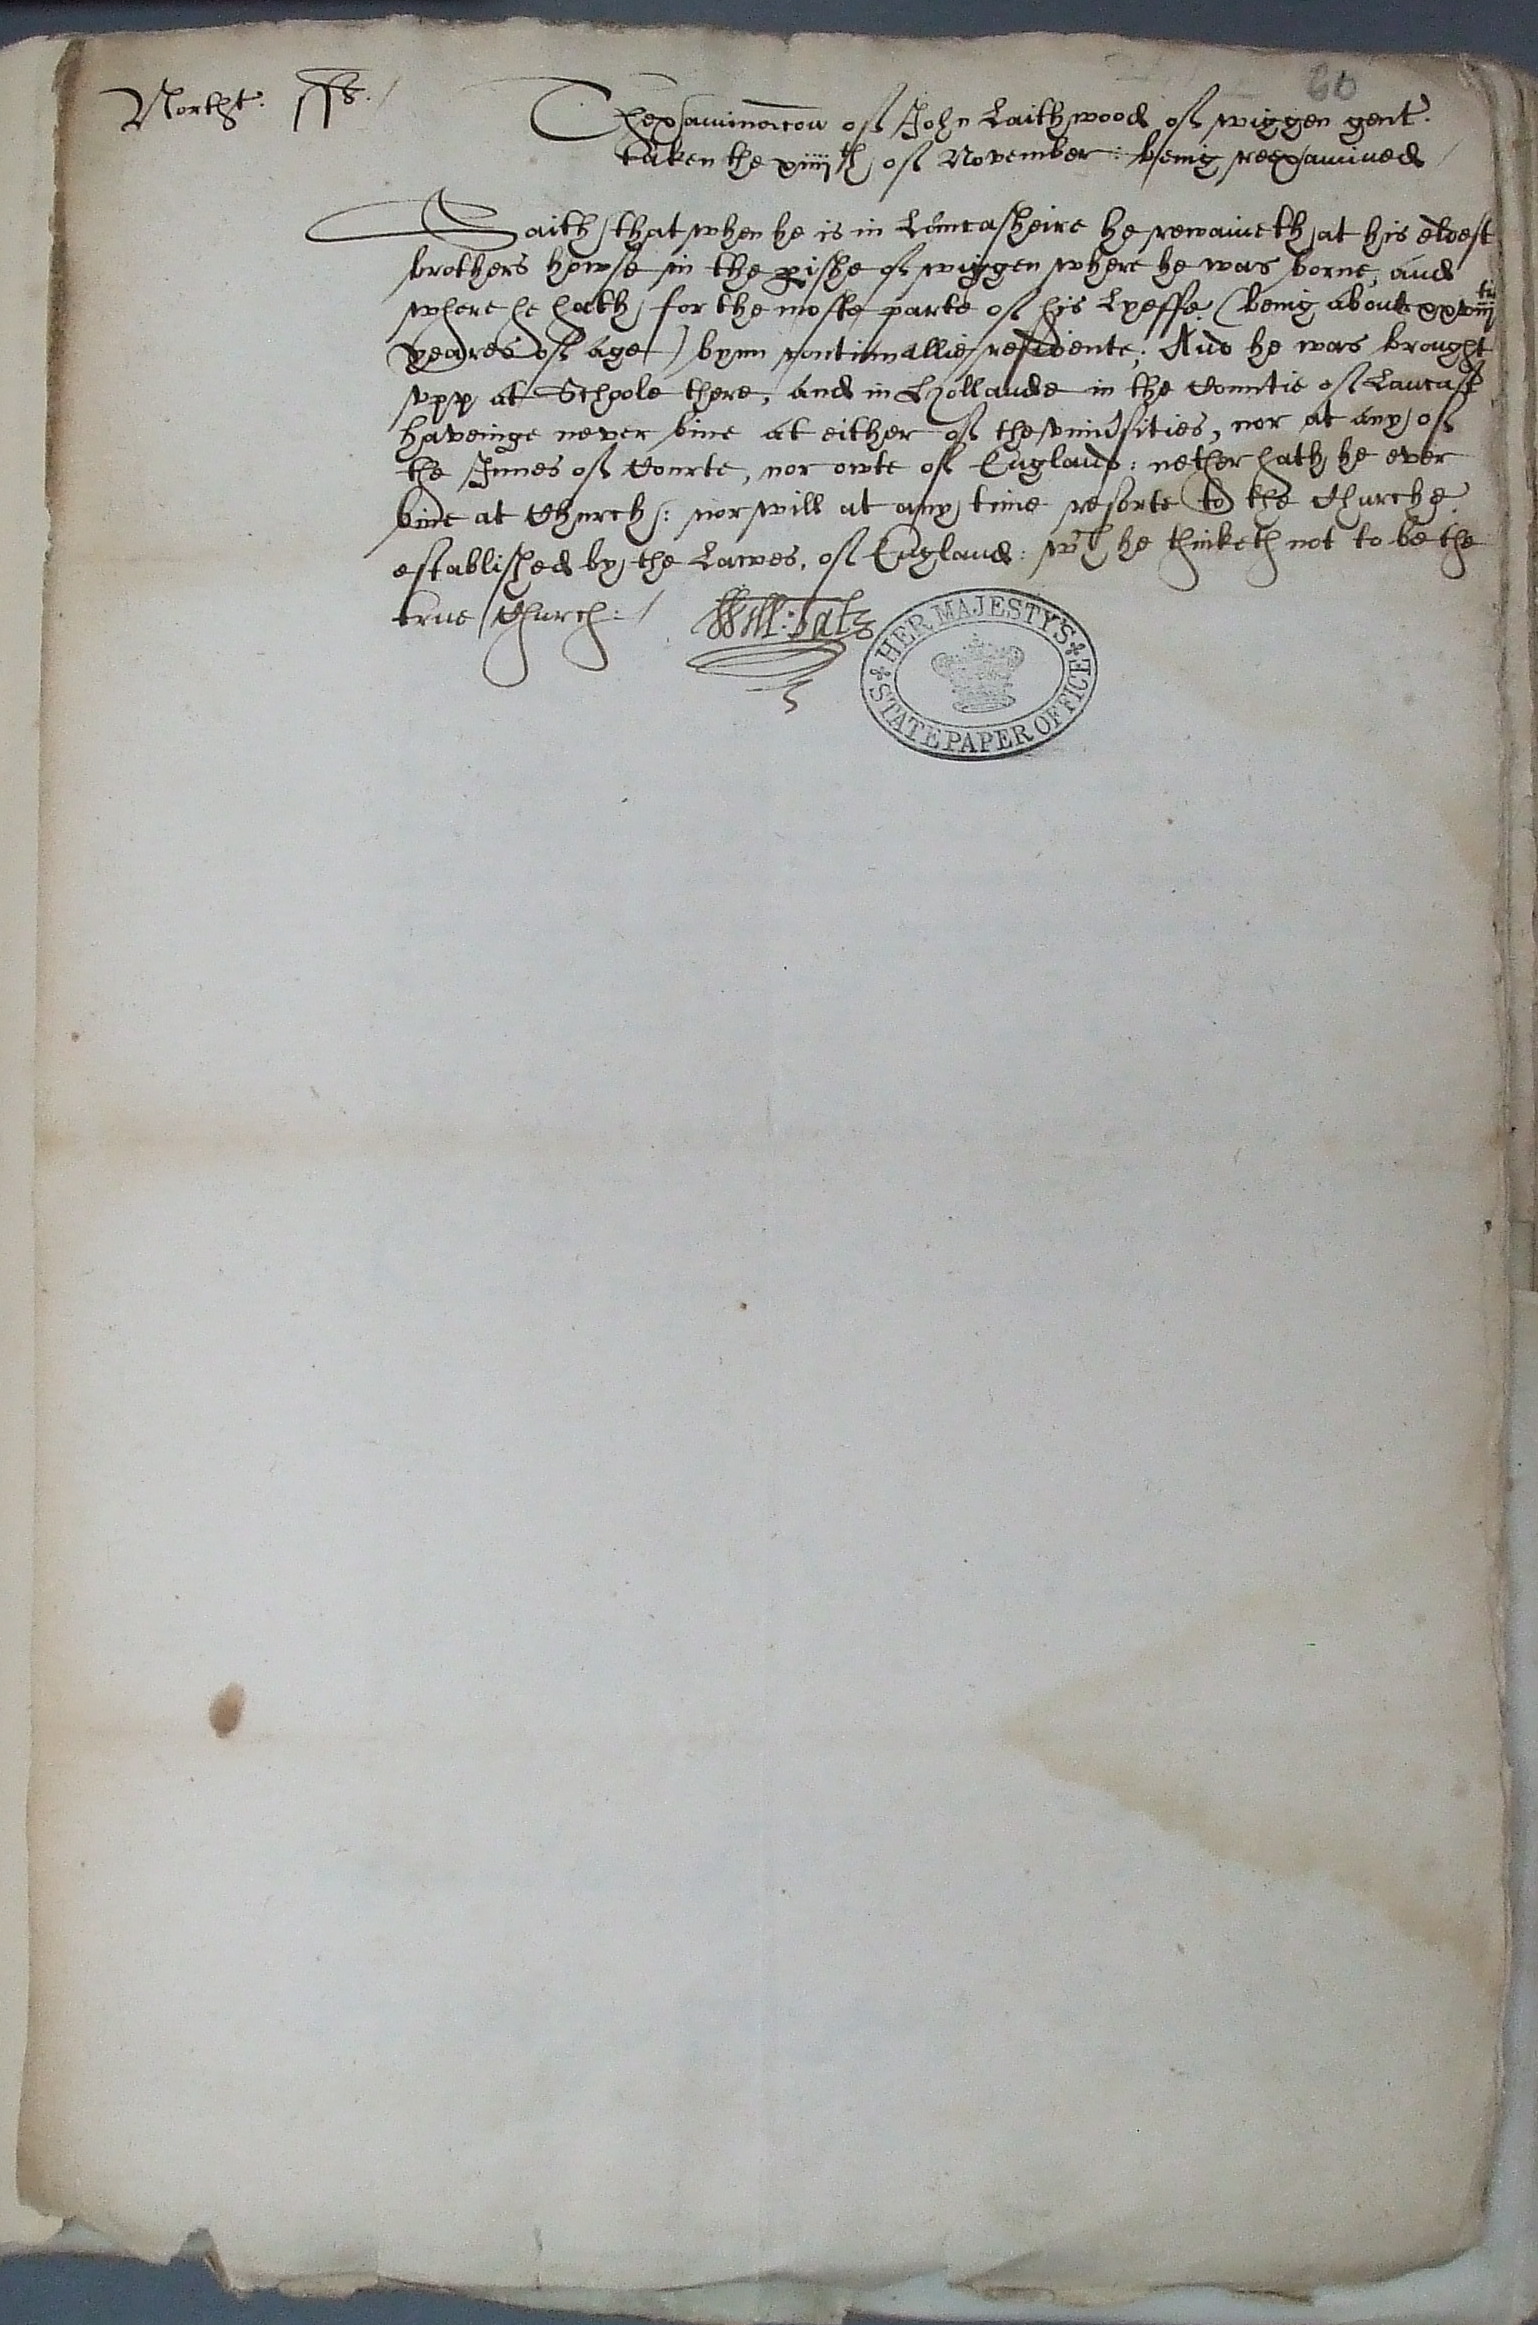 80
Northt. ss.
Thexaminacon of John Laithwood of wiggen gent.
taken the xiiijth of November: being reexamined
Saith that when he is in Lancasheire he remaineth at his eldest
brothers howse in the pishe of wiggen where he was borne, and
where he hath for the moste parte of his Lyeffe (being about xxviijtie
yeares of age) bynn continuallie residente; And he was brought
vpp at Schoole there, and in Hollande in the Countie of Lancast
haveinge never bine at either of the vniusities, nor at any of
the Innes of Courte, nor owte of England: nether hath he ever
bine at Church: nor will at any time resorte to the Churche
established by the Lawes, of England: wch he thinketh not to be the
true Church:
Will: Tate
HER MAJESTY'S
STATE PAPER OFFICE